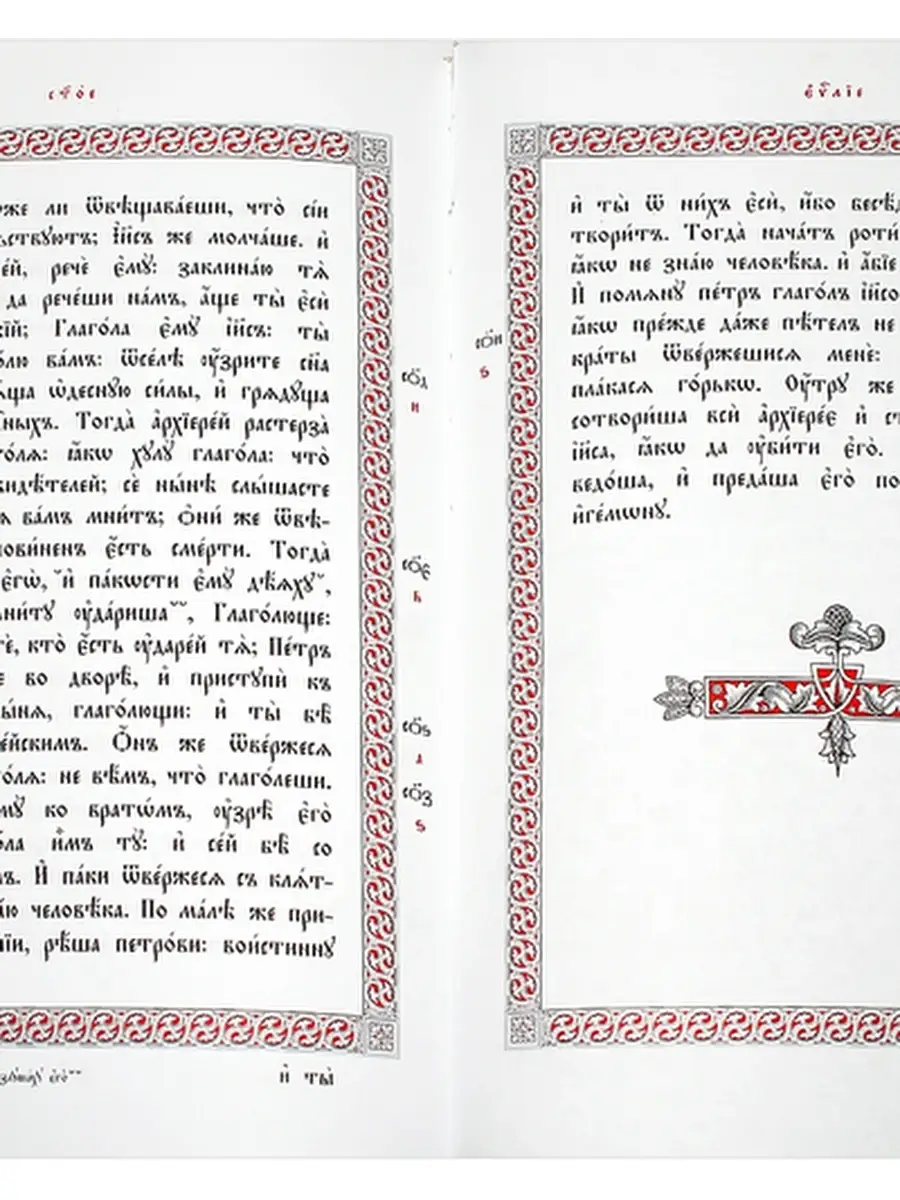 ст҃о́е
у́же ли ѿвѣщава́еши, что̀ сі́и
ьствꙋютъ; і҆и҃съ же молча́ше. и҆
е́й, речѐ є҆мꙋ̀: заклина́ю тѧ̀
да рече́ши на́мъ, а҆́ще ты̀ є҆сѝ
кїй; Глаго́ла є҆мꙋ̀ і҆и҃съ: ты̀
блю ва́мъ: ѿсе́лѣ ᲂу҆́зрите сн҃а
ѧ́ща ѡ҆деснꙋ́ю си́лы, и҆ грѧдꙋ́ща
ныхъ. Тогда̀ а҆рхїере́й растерза̀
го́лѧ: ꙗ҆́кѡ хꙋлꙋ̀ глаго́ла: что̀
видѣ́телей; сѐ ны́нѣ слы́шасте
сѧ ва́мъ мни́тъ; Ѻ҆ни́ же ѿвѣ-
пови́ненъ є҆́сть сме́рти. Тогда̀
є҆гѡ̀, и҆ па́кѡсти є҆мꙋ̀ дѣ́ѧхꙋ,
ни́тꙋ ᲂу҆да́риша, Глаго́люще:
тѐ, кто̀ є҆́сть ᲂу҆даре́й тѧ̀; Пе́тръ
е во дворѣ̀, и҆ пристꙋпѝ къ
ы́нѧ, глаго́лющи: и҆ ты̀ бѣ̀
е́йскимъ. Ѻ҆́нъ же ѿве́ржесѧ
го́лѧ: не вѣ́мъ, что̀ глаго́леши.
мꙋ̀ ко вратѡ́мъ, ᲂу҆зрѣ̀ є҆го̀
о́ла и҆̀мъ тꙋ̀: и҆ се́й бѣ̀ со
мъ. И҆ па́ки ѿве́ржесѧ съ клѧ́т-
а́ю человѣ́ка. По ма́лѣ же при-
їи, рѣ́ша петро́ви: вои́стиннꙋ
є҆го̀
и҆ ты̀
со҃д
и
со҃є
в
со҃ѕ
а
со҃з
ѕ
є҆ѵⷢ҇лїе
и҆ ты̀ ѿ ни́хъ є҆сѝ, и҆́бо бесѣ́д
твори́тъ. Тогда̀ нача́тъ роти́
ꙗ҆́кѡ не зна́ю человѣ́ка. и҆ а҆́бїе
И҆ помѧнꙋ̀ пе́тръ глаго́лъ і҆и҃со
ꙗ҆́кѡ пре́жде да́же пѣ́тель не
кра́ты ѿве́ржешисѧ менѐ:
пла́касѧ го́рькѡ. Оу҆́трꙋ же
сотвори́ша всѝ а҆рхїере́є и҆ ст
і҆и҃са, ꙗ҆́кѡ да ᲂу҆бі́ти є҆го̀.
ведо́ша, и҆ преда́ша є҆го̀ по
и҆ге́мѡнꙋ.
со҃и
ѕ